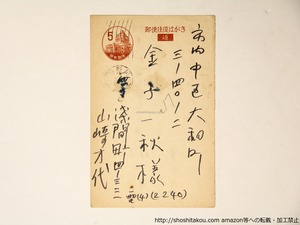 郵便往復はがき
5
市内中区大和町
三ノ四〇ノ二
金子一秋様
浅間町四ノ三二二
山崎才代
(4)(2240)
http://shoshitakou.com amazon等への転載・加工禁止